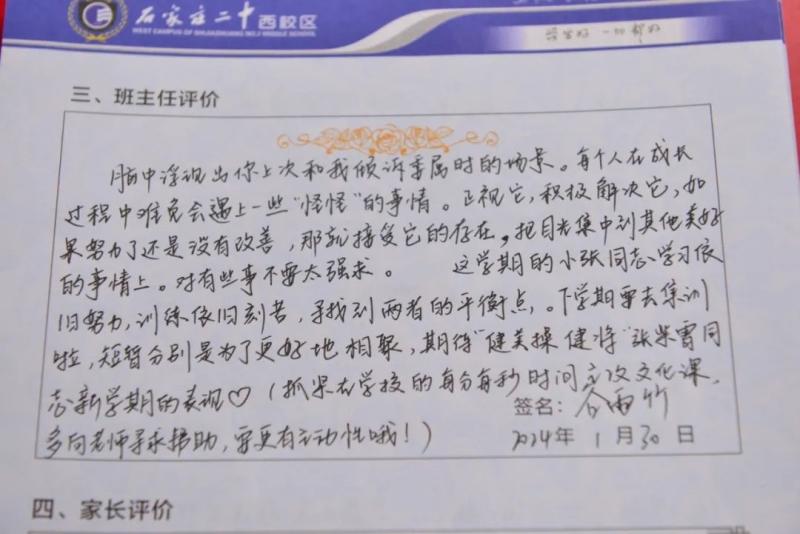 石家庄二中西校区
WEST CAMPUS OF SHIJIAZHUANG NO.2 MIDDLE SCHOOL
三、班主任评价
脑中浮现出你上次和我倾诉委屈时的场景。每个人在成长
过程中难免会遇上一些“怪怪”的事情。正视它,积极解决它,如
果努力了还是没有改善,那就接受它的存在,把目光集中到其他美好
的事情上。对有些事不要太强求。 这学期的小张同志学习依
旧努力,训练依旧刻苦,寻找到两者的平衡点。下学期要去集训
啦,短暂分别是为了更好地相聚,期待“健美操健将”张雪同
志新学期的表现♡(抓紧在学校的每分每秒时间主攻文化课,
签名:谷雨竹
多向老师寻求帮助,要更有主动性哦!)
2024年1月30日
四、家长评价